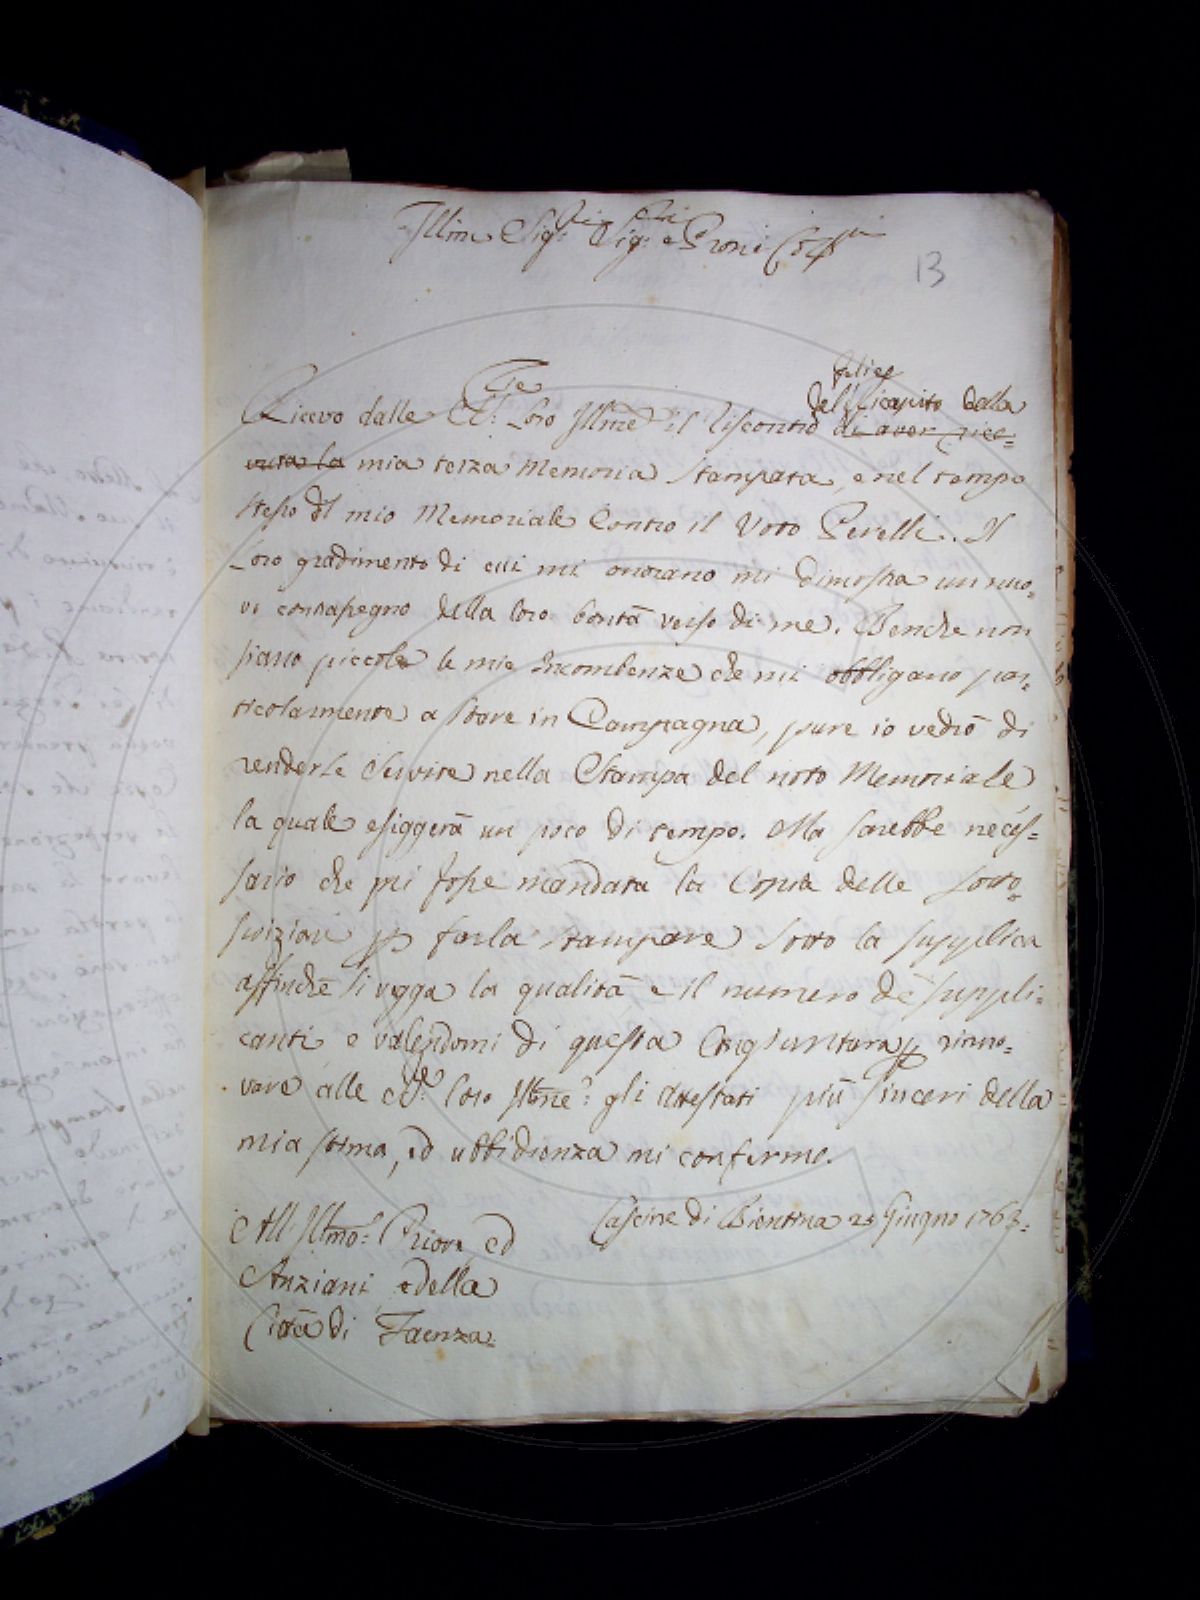 Illmi Sigri Sigri e Proni Colmi
13
felice
del ricapito della
Ricevo dalle SS:rie Loro Illme il riscontro di aver rice=
vuta la mia terza Memoria stampata, e nel tempo
stesso del mio Memoriale Contro il Voto Perelli. Il
Loro gradimento di cui mi onorano mi dimostra un nuo=
vo contrasegno della loro bontà verso di me. Benche non
siano piccole le mie Incombenze che mi obbligano par=
ticolarmente a stare in Campagna, pure io vedrò di
renderle servite nella Stampa del noto Memoriale
la quale esiggerà un poco di tempo. Ma sarebbe neces=
sario che mi fosse mandata la Copia delle sotto=
scrizioni per farla stampare sotto la supplica
affinchè si vegga la qualità e il numero de' suppli=
canti e valendomi di questa Congiuntura per rinno=
vare alle SS: loro Illme: gli attestati più sinceri della
mia stima, ed ubbidienza mi confermo.
Cascine di Bientina 23 Giugno 1763.
All Illmo: Priore ed
Anziani della
Città di Faenza.